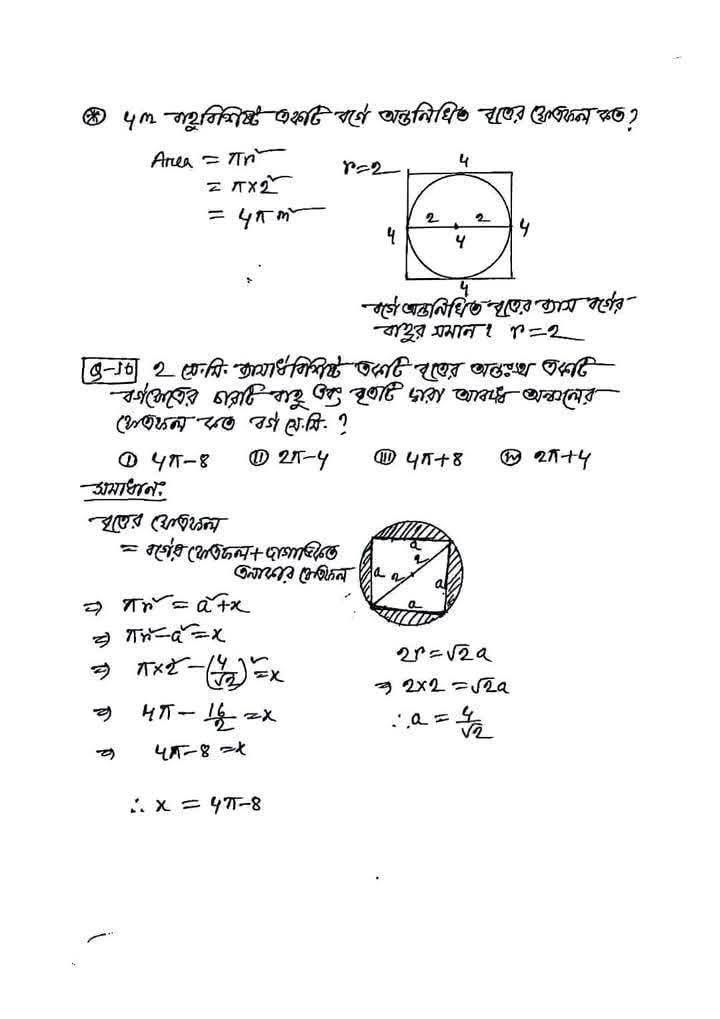 ⊛ 4m বাহুবিশিষ্ট একটি বর্গে অন্তর্লিখিত বৃত্তের ক্ষেত্রফল কত?
Area = πr²
= π×2²
= 4π m²
r=2
4
2 2
4 4 4
4
বর্গে অন্তর্লিখিত বৃত্তের ব্যাস বর্গের
বাহুর সমান। r=2
Q-10 2 সে.মি. ব্যাসার্ধবিশিষ্ট একটি বৃত্তের অন্তঃস্থ একটি
বর্গক্ষেত্রের চারটি বাহু এবং বৃত্তটি দ্বারা আবদ্ধ অঞ্চলের
ক্ষেত্রফল কত বর্গ সে.মি. ?
(i) 4π-8 (ii) 2π-4 (iii) 4π+8 (iv) 2π+4
সমাধান:
বৃত্তের ক্ষেত্রফল
= বর্গের ক্ষেত্রফল + দাগাঙ্কিত
এলাকার ক্ষেত্রফল
a
2
a 2 a
a
⇒ πr² = a²+x
⇒ πr²-a² = x
⇒ π×2² - (4/√2)² = x
⇒ 4π - 16/2 = x
⇒ 4π-8 = x
∴ x = 4π-8
2r = √2a
⇒ 2×2 = √2a
∴ a = 4/√2